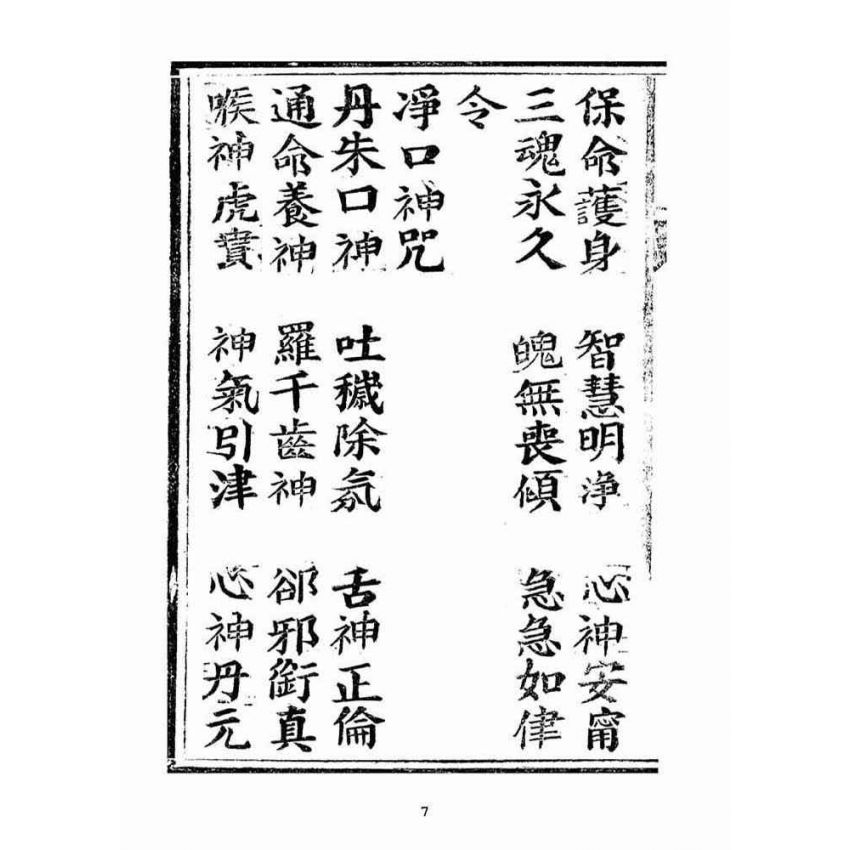 保命護身　智慧明淨　心神安甯
三魂永久　魄無喪傾　急急如律
令
凈口神咒
丹朱口神　吐穢除氛　舌神正倫
通命養神　羅千齒神　郤邪衛真
喉神虎賁　神氣引津　心神丹元
7